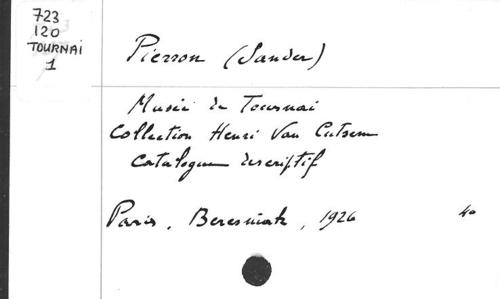 723
120
TOURNAI
1
Pierron (Sander)
Musée de Tournai
Collection Henri Van Cutsem
Catalogue descriptif
Paris, Beresniak, 1926 4°